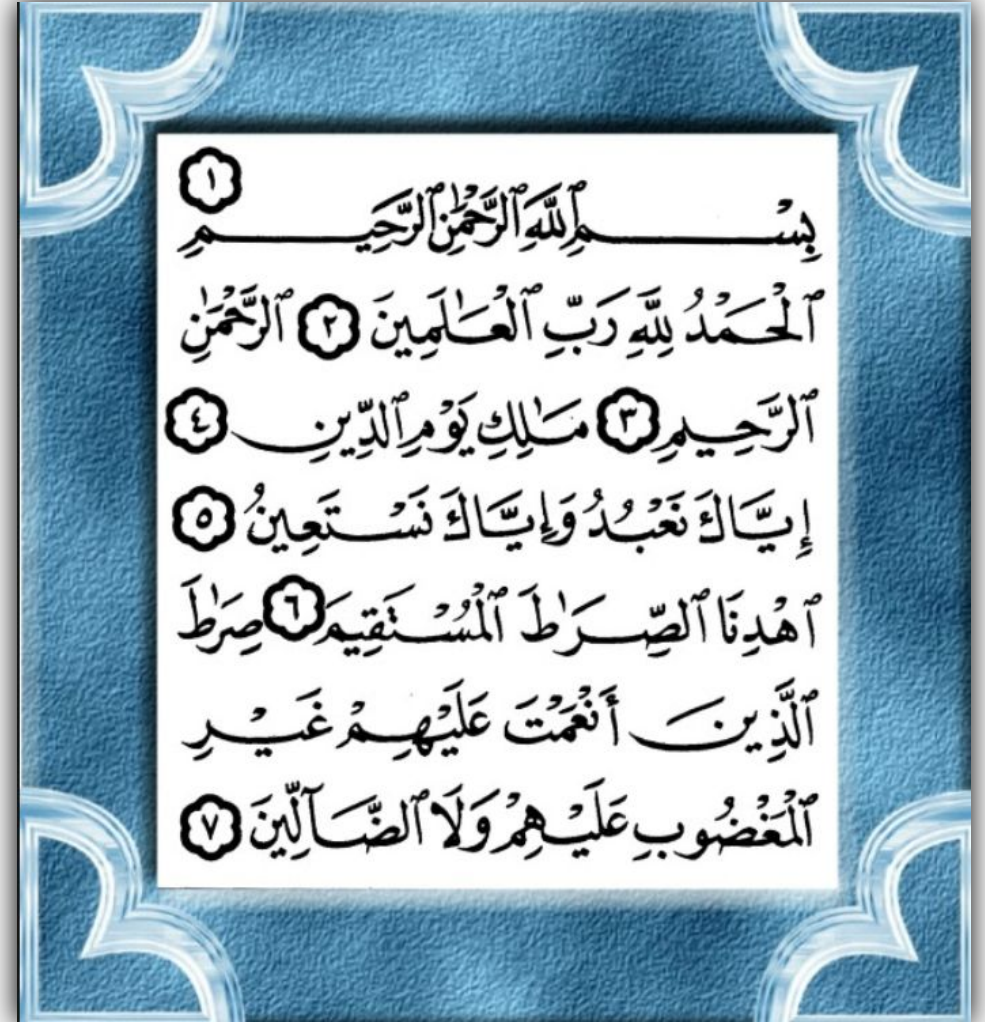 بِسْمِ ٱللَّهِ ٱلرَّحْمَٰنِ ٱلرَّحِيمِ ١
ٱلْحَمْدُ لِلَّهِ رَبِّ ٱلْعَـٰلَمِينَ ٢ ٱلرَّحْمَٰنِ
ٱلرَّحِيمِ ٣ مَـٰلِكِ يَوْمِ ٱلدِّينِ ٤
إِيَّاكَ نَعْبُدُ وَإِيَّاكَ نَسْتَعِينُ ٥
ٱهْدِنَا ٱلصِّرَٰطَ ٱلْمُسْتَقِيمَ ٦ صِرَٰطَ
ٱلَّذِينَ أَنْعَمْتَ عَلَيْهِمْ غَيْرِ
ٱلْمَغْضُوبِ عَلَيْهِمْ وَلَا ٱلضَّآلِّينَ ٧